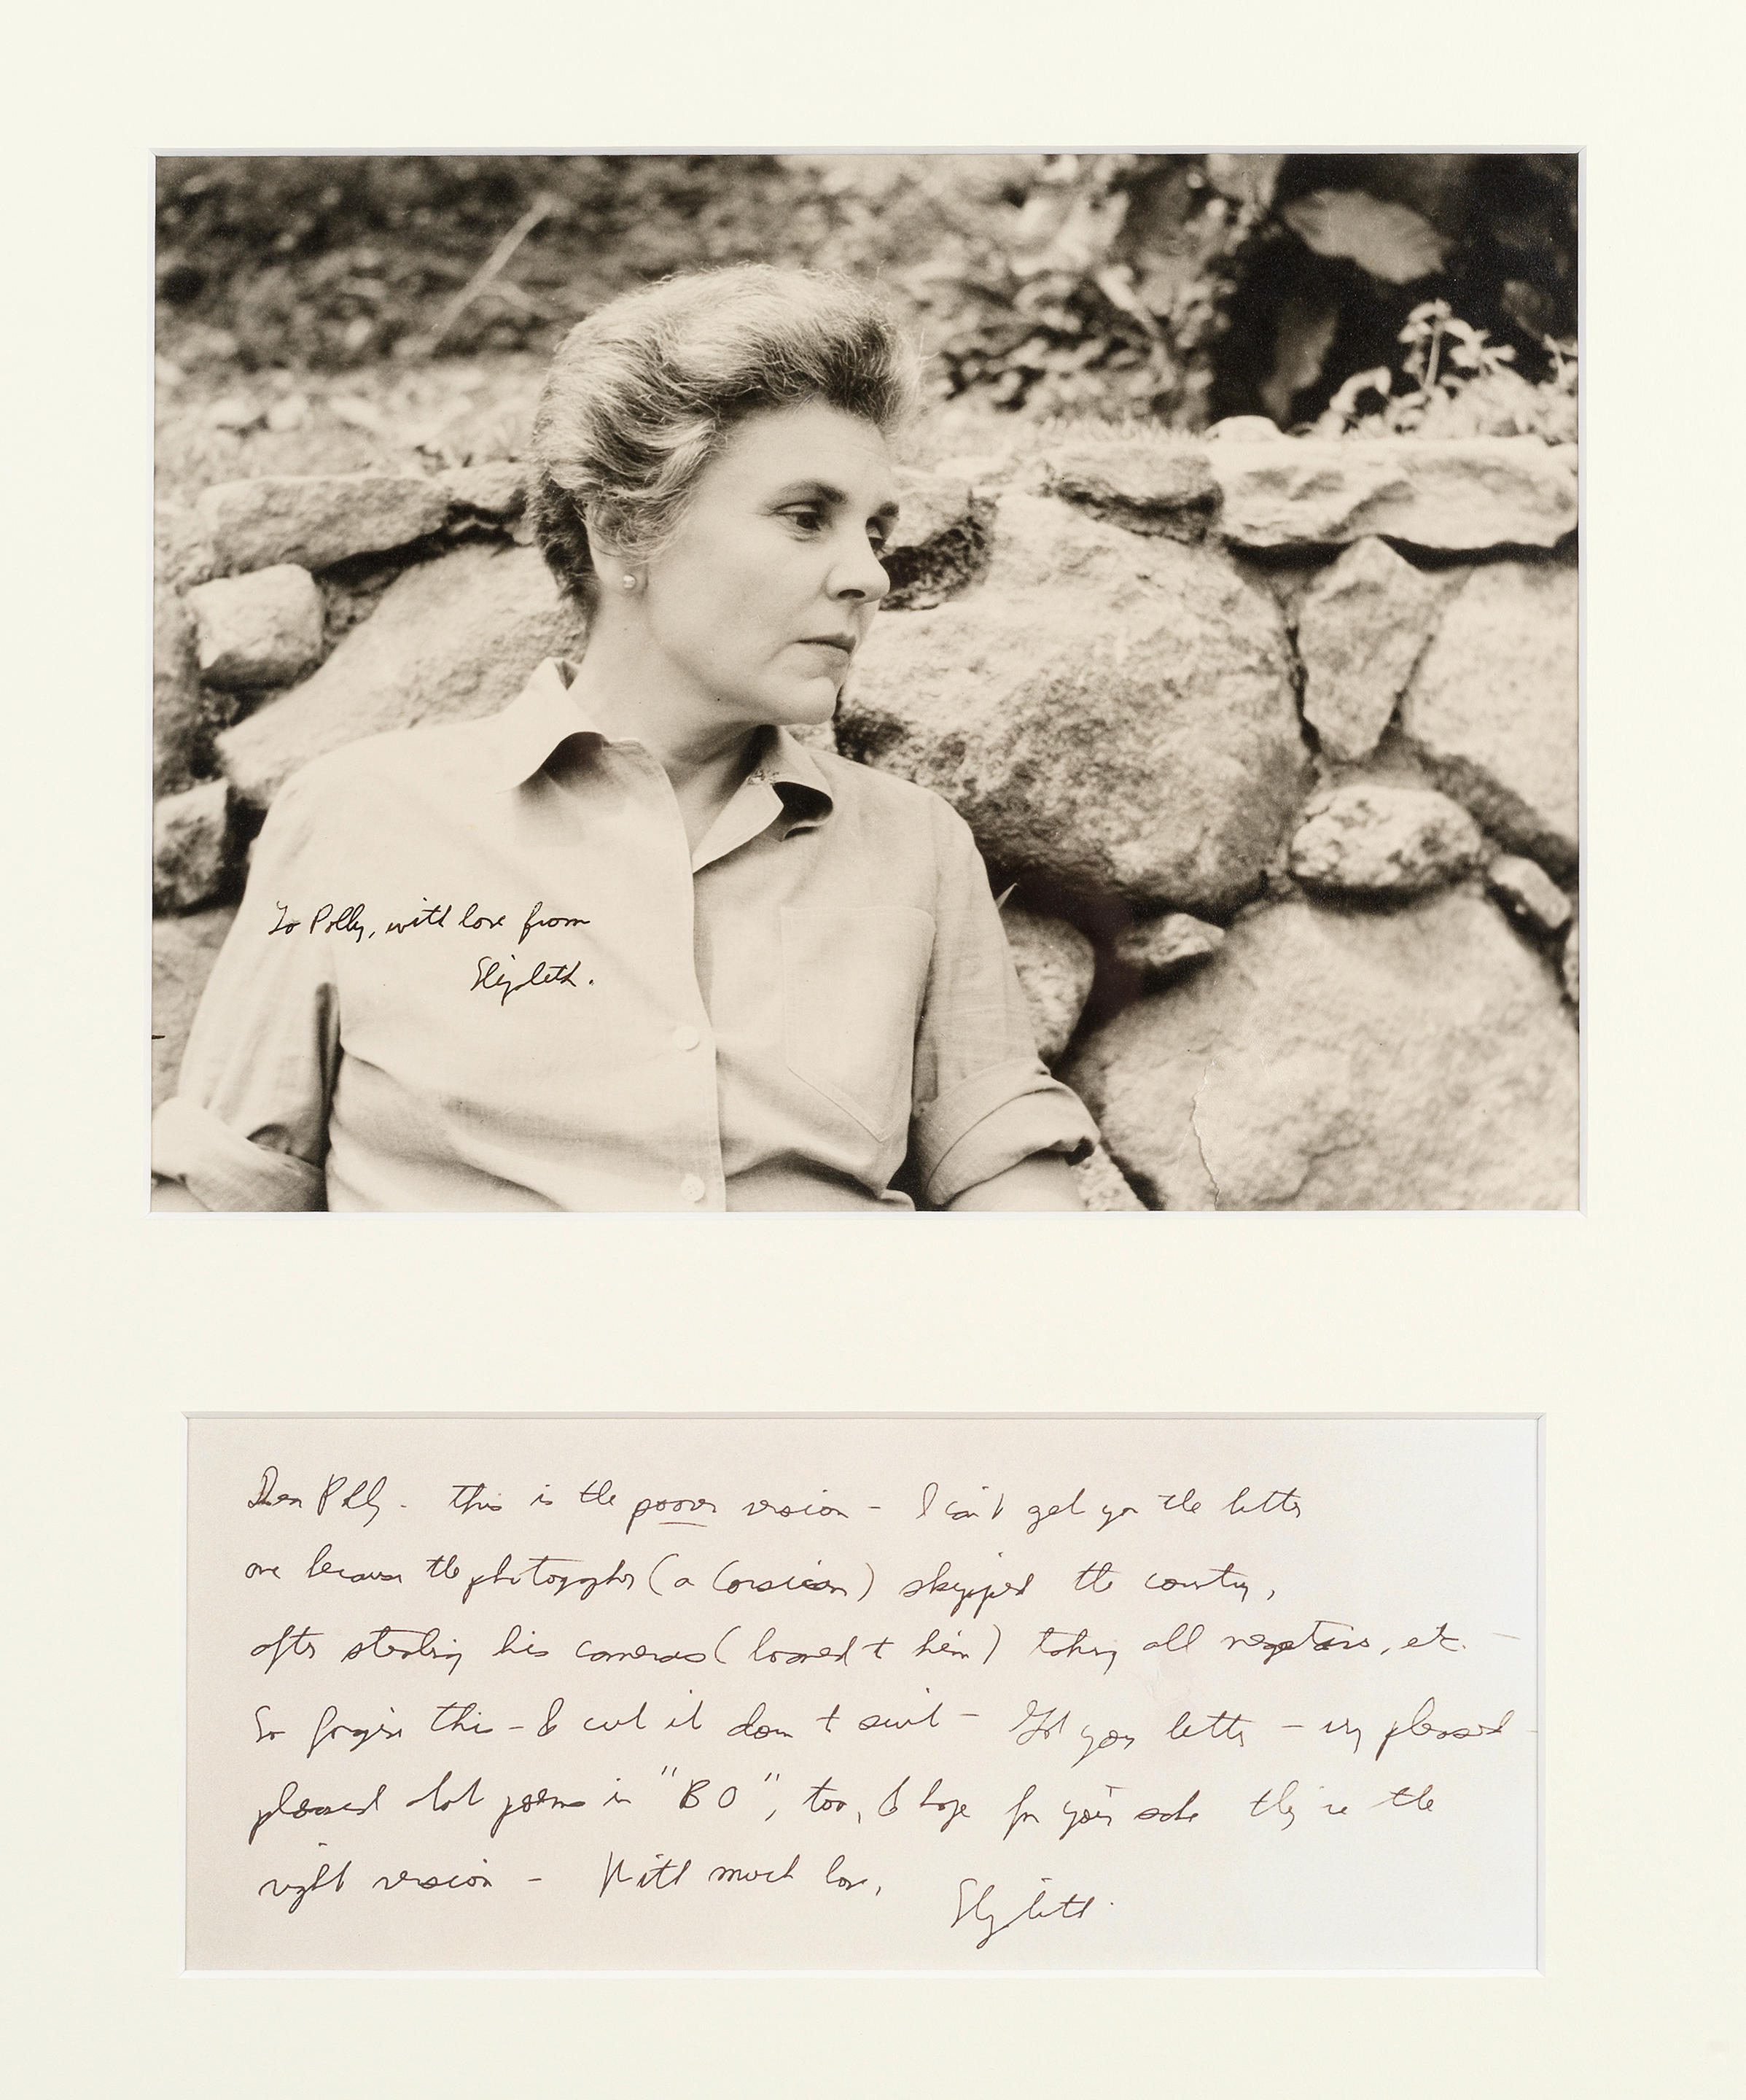 To Polly, with love from
Elizabeth.
Dear Polly - This is the poorer version - I can't get you the better
one because the photographer (a Corsican) skipped the country,
after stealing his cameras (loaned to him) taking all negatives, etc. -
So forgive this - I cut it down to suit - Got your letter - very pleased -
pleased abt poems in "BO", too, & hope for your sake they're the
right version - With much love,
Elizabeth.